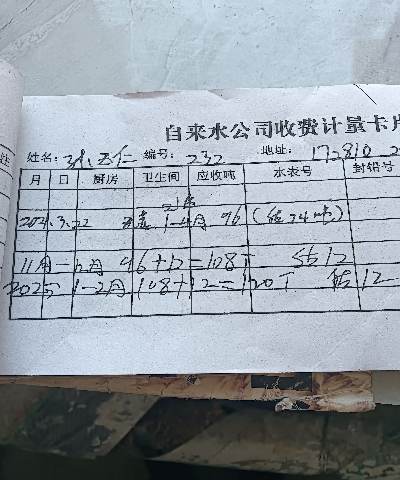 自来水公司收费计量卡片
姓名: 编号: 232 地址: 172810
月 日 厨房 卫生间 应收吨 水表号 封铅号
3.22 1-4月 96 (结24吨)
11月-12月 96+12=108T 结12
2025 1-2月 108+12=120T 结12